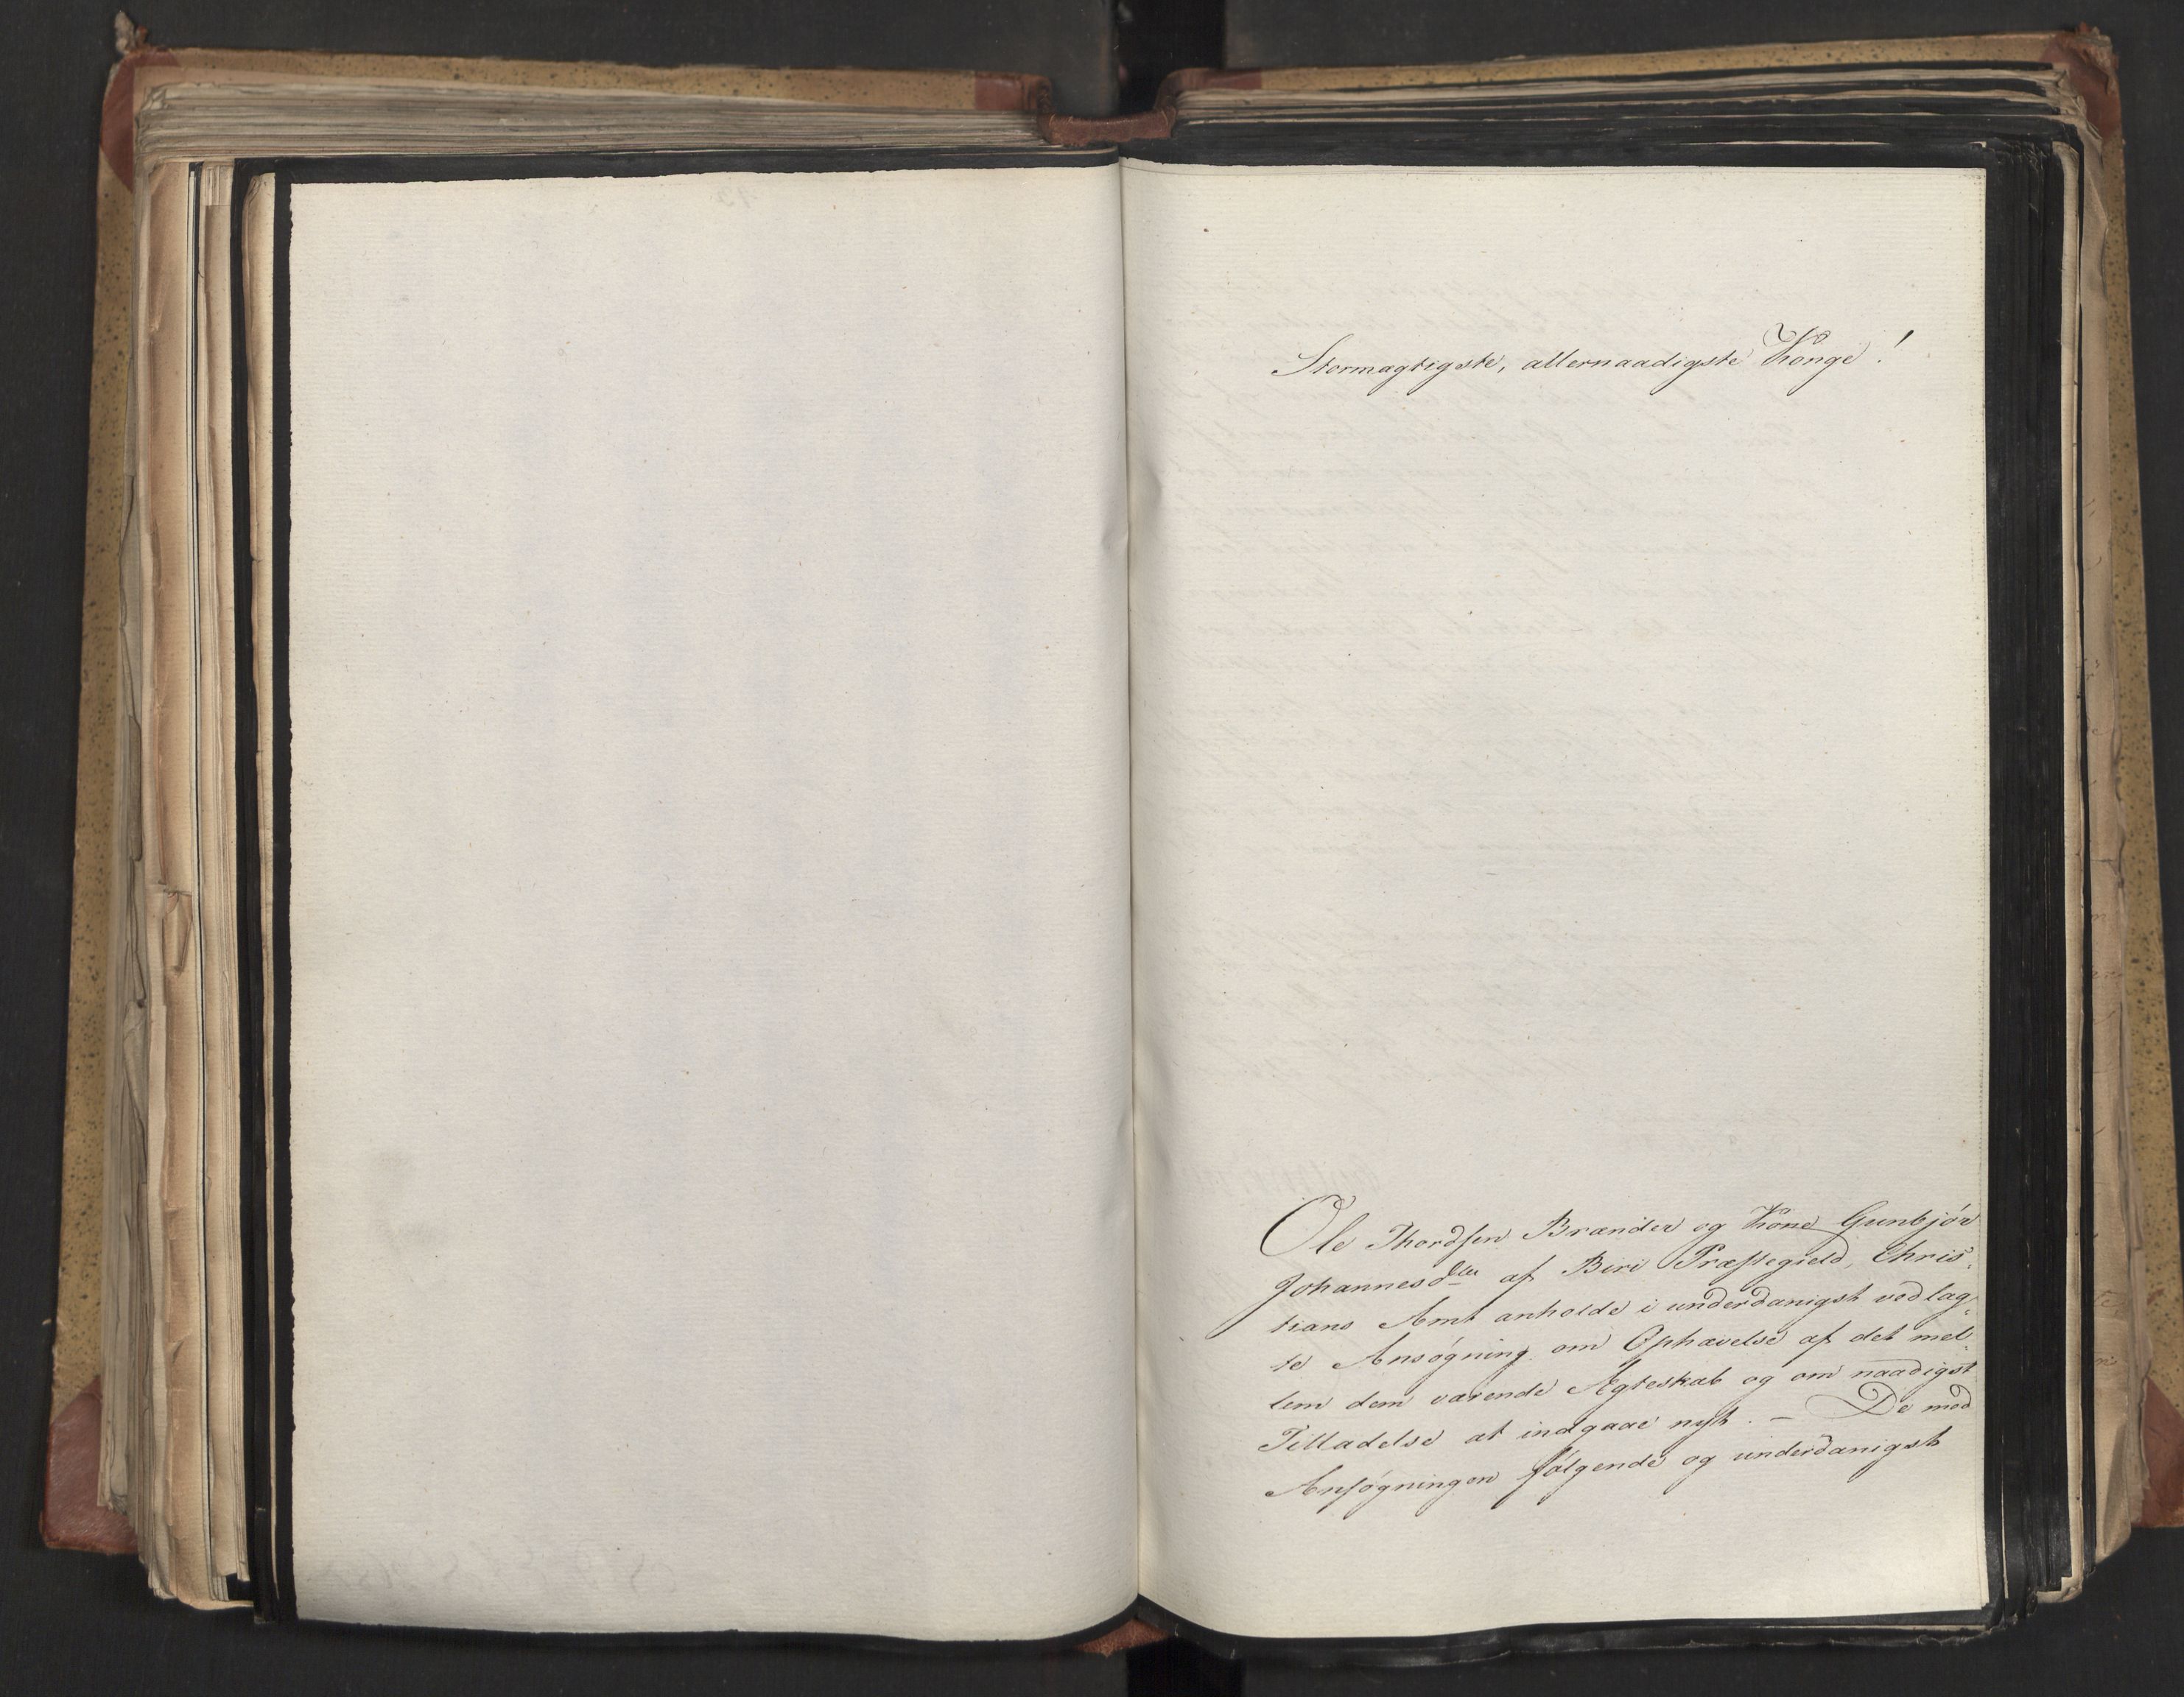 Stormægtigste, allernaadigste Konge!
Ole Thordsen Brænder og Kone Gunbjör
Johannesdtter af Biri Præstegield, Chris-
tians Amt anholde i underdanigst vedlag-
te Ansøgning om Ophævelse af det mel-
lem dem værende Ægteskab og om naadigst
Tilladelse at indgaae nyt. – De med
Ansøgningen følgende og underdanigst